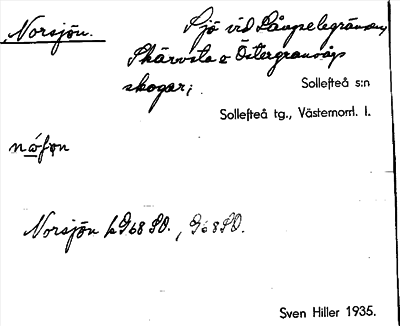 Norsjön. Sjö vid Långselegränsen,
Skärvsta o Östergransåps
skogar;
Sollefteå s:n
Sollefteå tg., Västernorrl. l.
Norsjön k G68 SO., G68 SO.
Sven Hiller 1935.